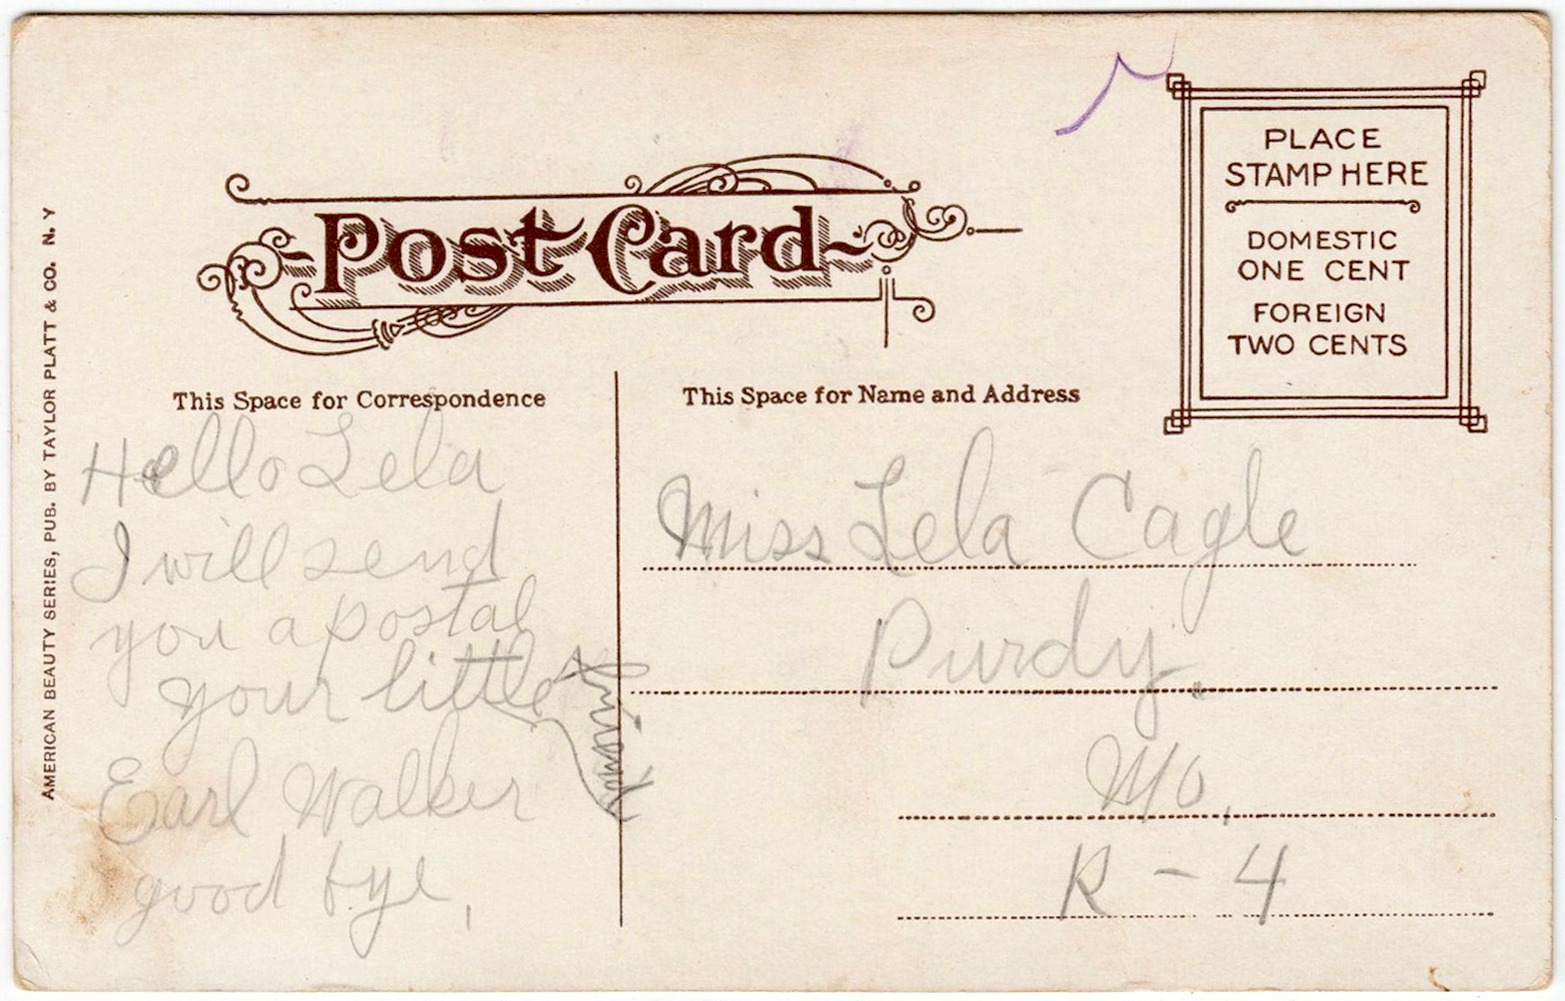 PLACE
STAMP HERE
DOMESTIC
ONE CENT
FOREIGN
TWO CENTS
Post Card
AMERICAN BEAUTY SERIES, PUB. BY TAYLOR PLATT & CO. N. Y
This Space for Correspondence
Hello Lela
I will send
you a postal
your little
friend
Earl Walker
good bye,
This Space for Name and Address
Miss Lela Cagle
Purdy.
Mo.
R - 4